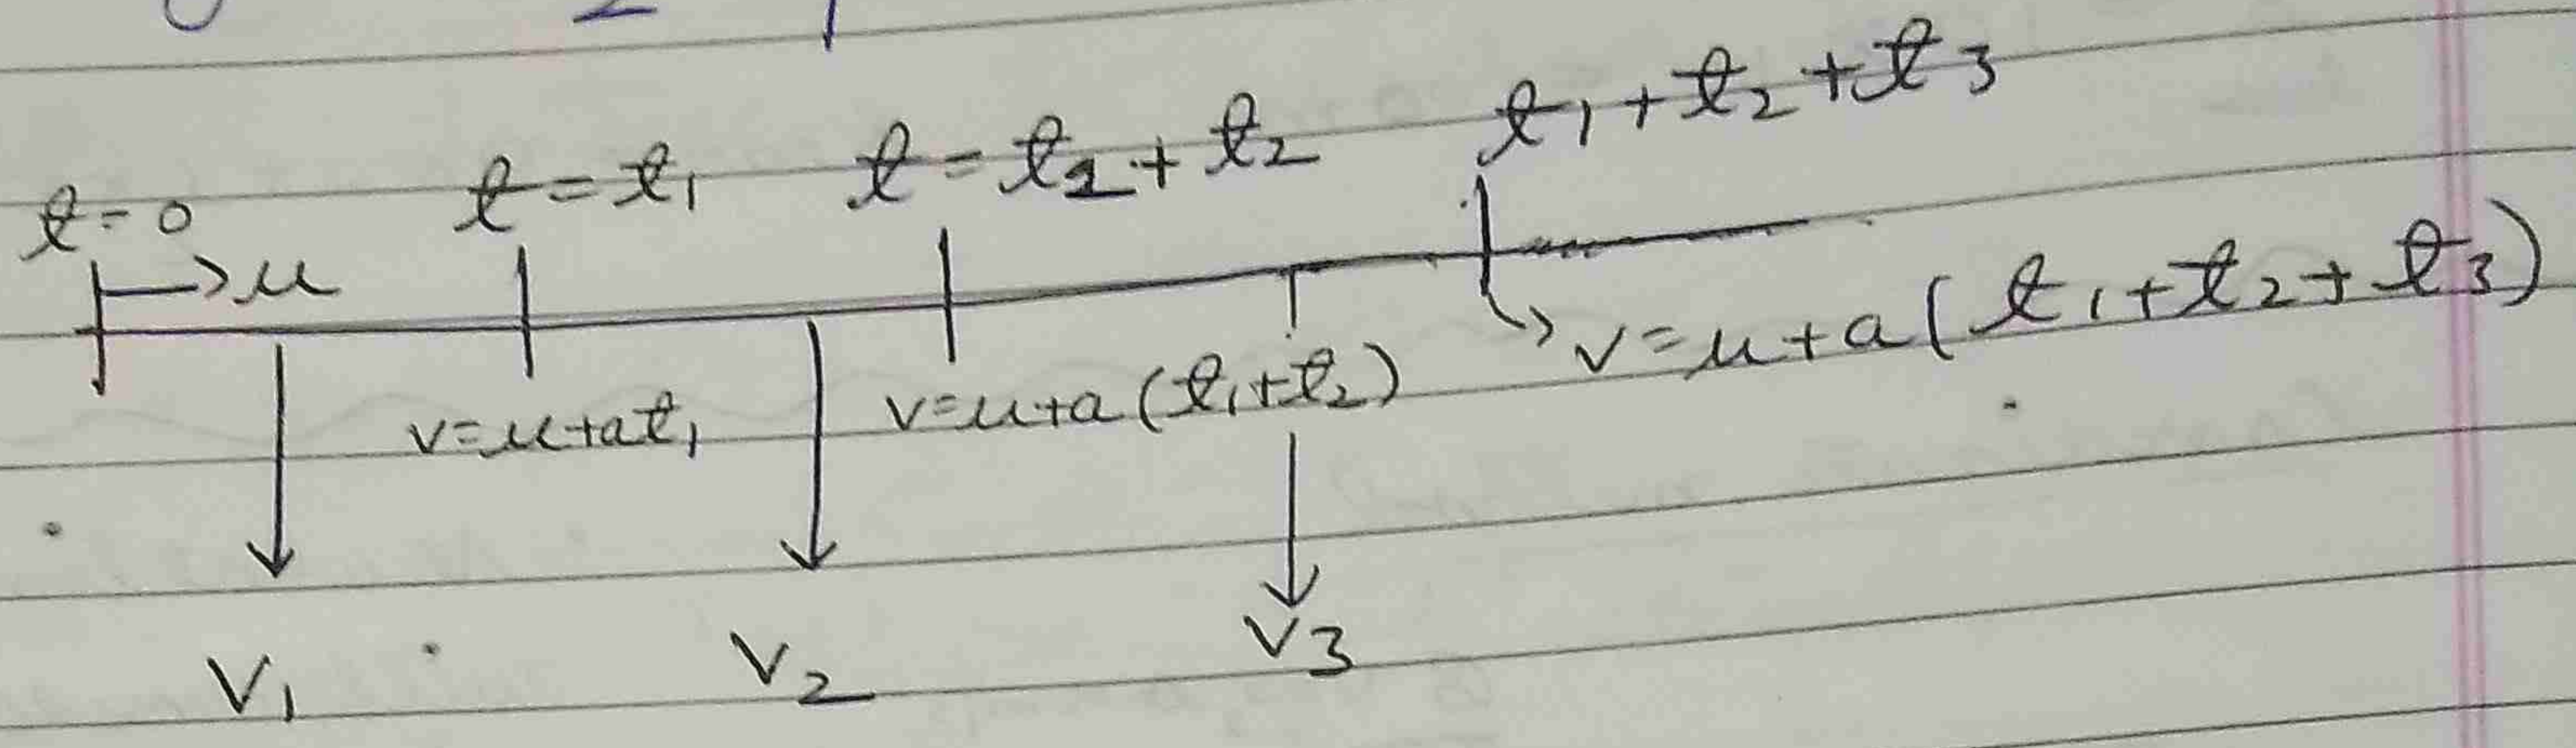 t=0 t=t₁ t=t₁+t₂ t₁+t₂+t₃
→u
v=u+at₁ v=u+a(t₁+t₂) v=u+a(t₁+t₂+t₃)
V₁ V₂ V₃